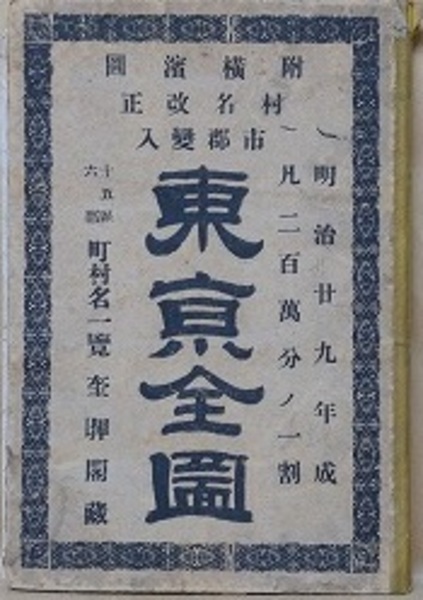 附橫濱圖
村名改正
市郡變入
明治廿九年成
凡二百萬分ノ一割
東京全圖
十五區
六郡
町村名一覽
奎暉閣藏